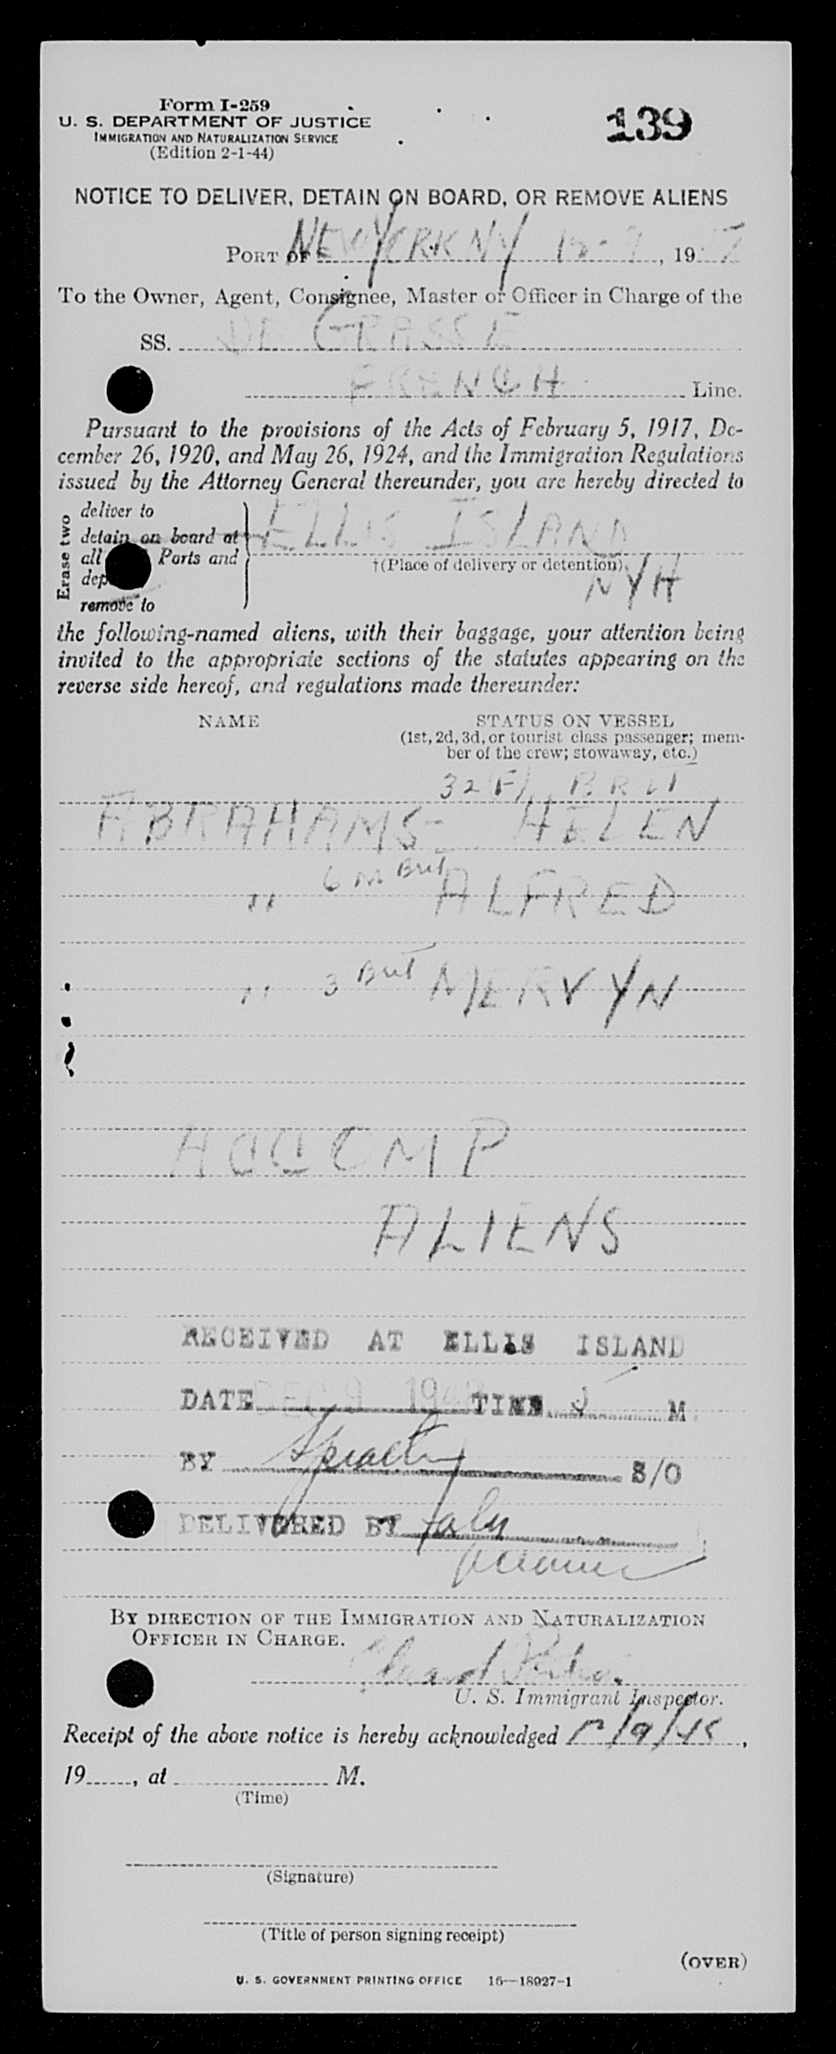 Form I-259
139
U. S. DEPARTMENT OF JUSTICE
IMMIGRATION AND NATURALIZATION SERVICE
(Edition 2-1-44)
NOTICE TO DELIVER, DETAIN ON BOARD, OR REMOVE ALIENS
PORT OF NEW YORK NY 12-9, 19
To the Owner, Agent, Consignee, Master or Officer in Charge of the
SS. DE GRASSE
FRENCH Line.
Pursuant to the provisions of the Acts of February 5, 1917, De-
cember 26, 1920, and May 26, 1924, and the Immigration Regulations
issued by the Attorney General thereunder, you are hereby directed to
Erase two
deliver to
detain on board at ELLIS ISLAND
all Ports and
†(Place of delivery or detention)
NYH
remove to
the following-named aliens, with their baggage, your attention being
invited to the appropriate sections of the statutes appearing on the
reverse side hereof, and regulations made thereunder:
NAME STATUS ON VESSEL
(1st, 2d, 3d, or tourist class passenger; mem-
ber of the crew; stowaway, etc.)
32 (F)
ABRAHAMS - HELEN
" 6 M Brit ALFRED
" 3 Brit MERVYN
ACCOMP
ALIENS
RECEIVED AT ELLIS ISLAND
DATE DEC 9 194 TIME M
BY S/O
DELIVERED BY
BY DIRECTION OF THE IMMIGRATION AND NATURALIZATION
OFFICER IN CHARGE.
U. S. Immigrant Inspector.
Receipt of the above notice is hereby acknowledged 12/9/48,
19......, at M.
(Time)
(Signature)
(Title of person signing receipt)
(OVER)
U. S. GOVERNMENT PRINTING OFFICE 16—18927-1